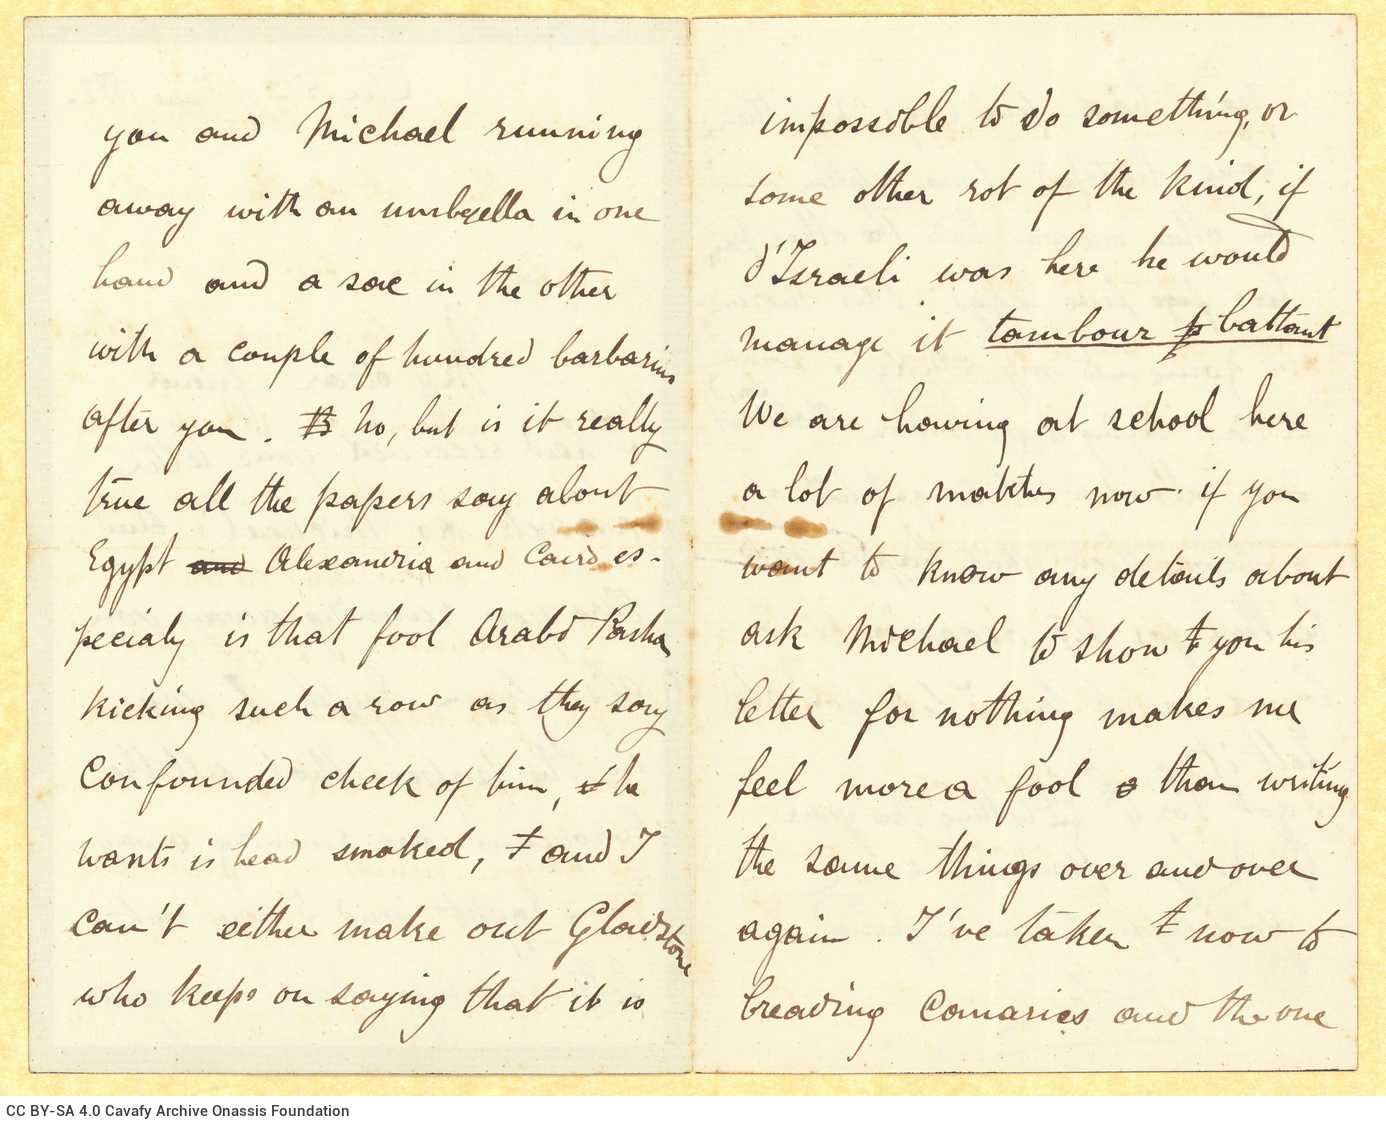 you and Michael running
away with an umbrella in one
hand and a sac in the other
with a couple of hundred barbarins
after you. No, but is it really
true all the papers say about
Egypt and Alexandria and Cairo es-
pecialy is that fool Arabi Pasha
kicking such a row as they say
Confounded cheek of him, he
wants is head smoked, and I
can't either make out Gladstone
who keeps on saying that it is
impossible to do something, or
some other rot of the kind, if
d'Israeli was here he would
manage it tambour battant
We are having at school here
a lot of matches now. if you
want to know any details about
ask Michael to show you his
letter for nothing makes me
feel more a fool than writing
the same things over and over
again. I've taken now to
breading Canaries and the one
CC BY-SA 4.0 Cavafy Archive Onassis Foundation